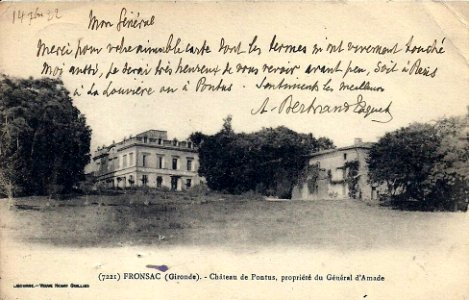 14 7bre 22
Mon Général
Merci pour votre aimable carte dont les termes m'ont vivement touché
Moi aussi, je serai très heureux de vous revoir avant peu, soit à Paris
à la Louvière ou à Pontus. Sentiments les meilleurs
A. Bertrand
(7221) FRONSAC (Gironde). - Château de Pontus, propriété du Général d'Amade
LIBOURNE. - VEUVE HENRY GUILLIER